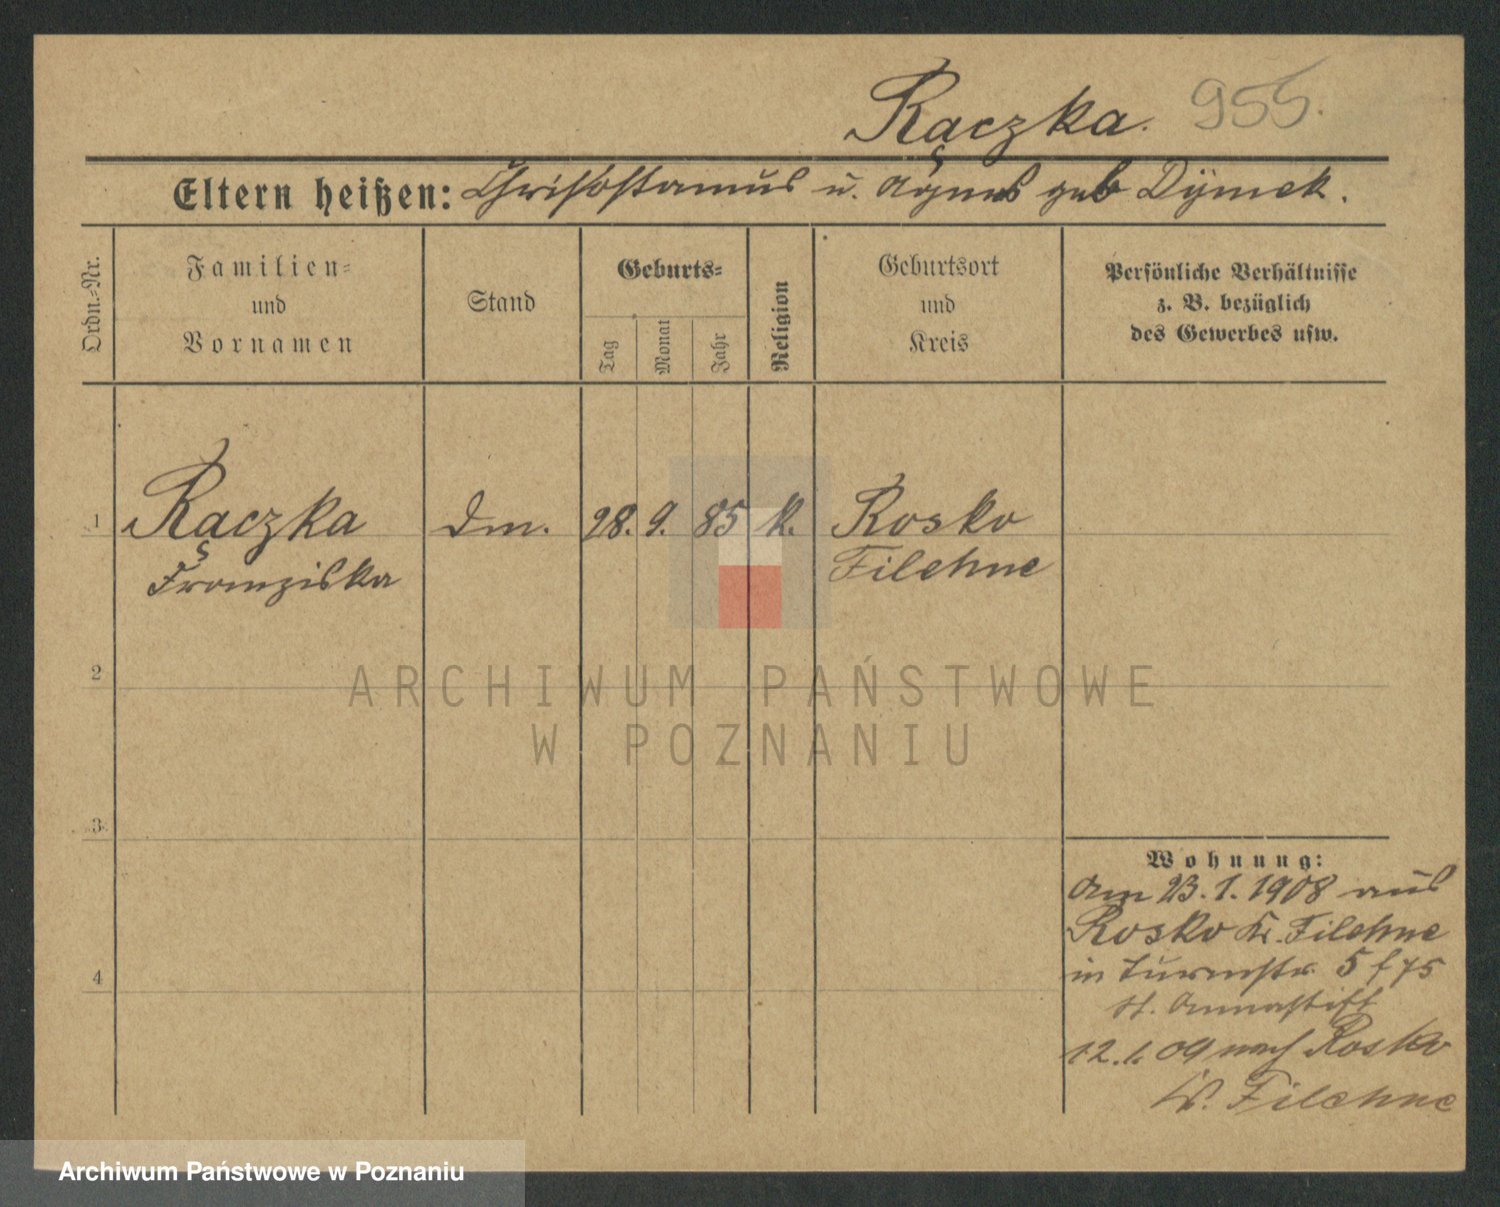 Rączka. 955.
Eltern heißen: Chrisostomus u. Agnes geb Dymek.
Ordn.-Nr.
Familien-
und
Vornamen
Stand
Geburts-
Tag
Monat
Jahr
Religion
Geburtsort
und
Kreis
Persönliche Verhältnisse
z. B. bezüglich
des Gewerbes usw.
1 Rączka Dm. 28. 9. 85 k. Rosko
Franziska Filehne
2
3
4
ARCHIWUM PAŃSTWOWE
W POZNANIU
Wohnung:
Am 23. 1. 1908 aus
Rosko Kr. Filehne
in Turmstr. 5
St. Annastift
12. 1. 09 nach Rosko
Kr. Filehne
Archiwum Państwowe w Poznaniu